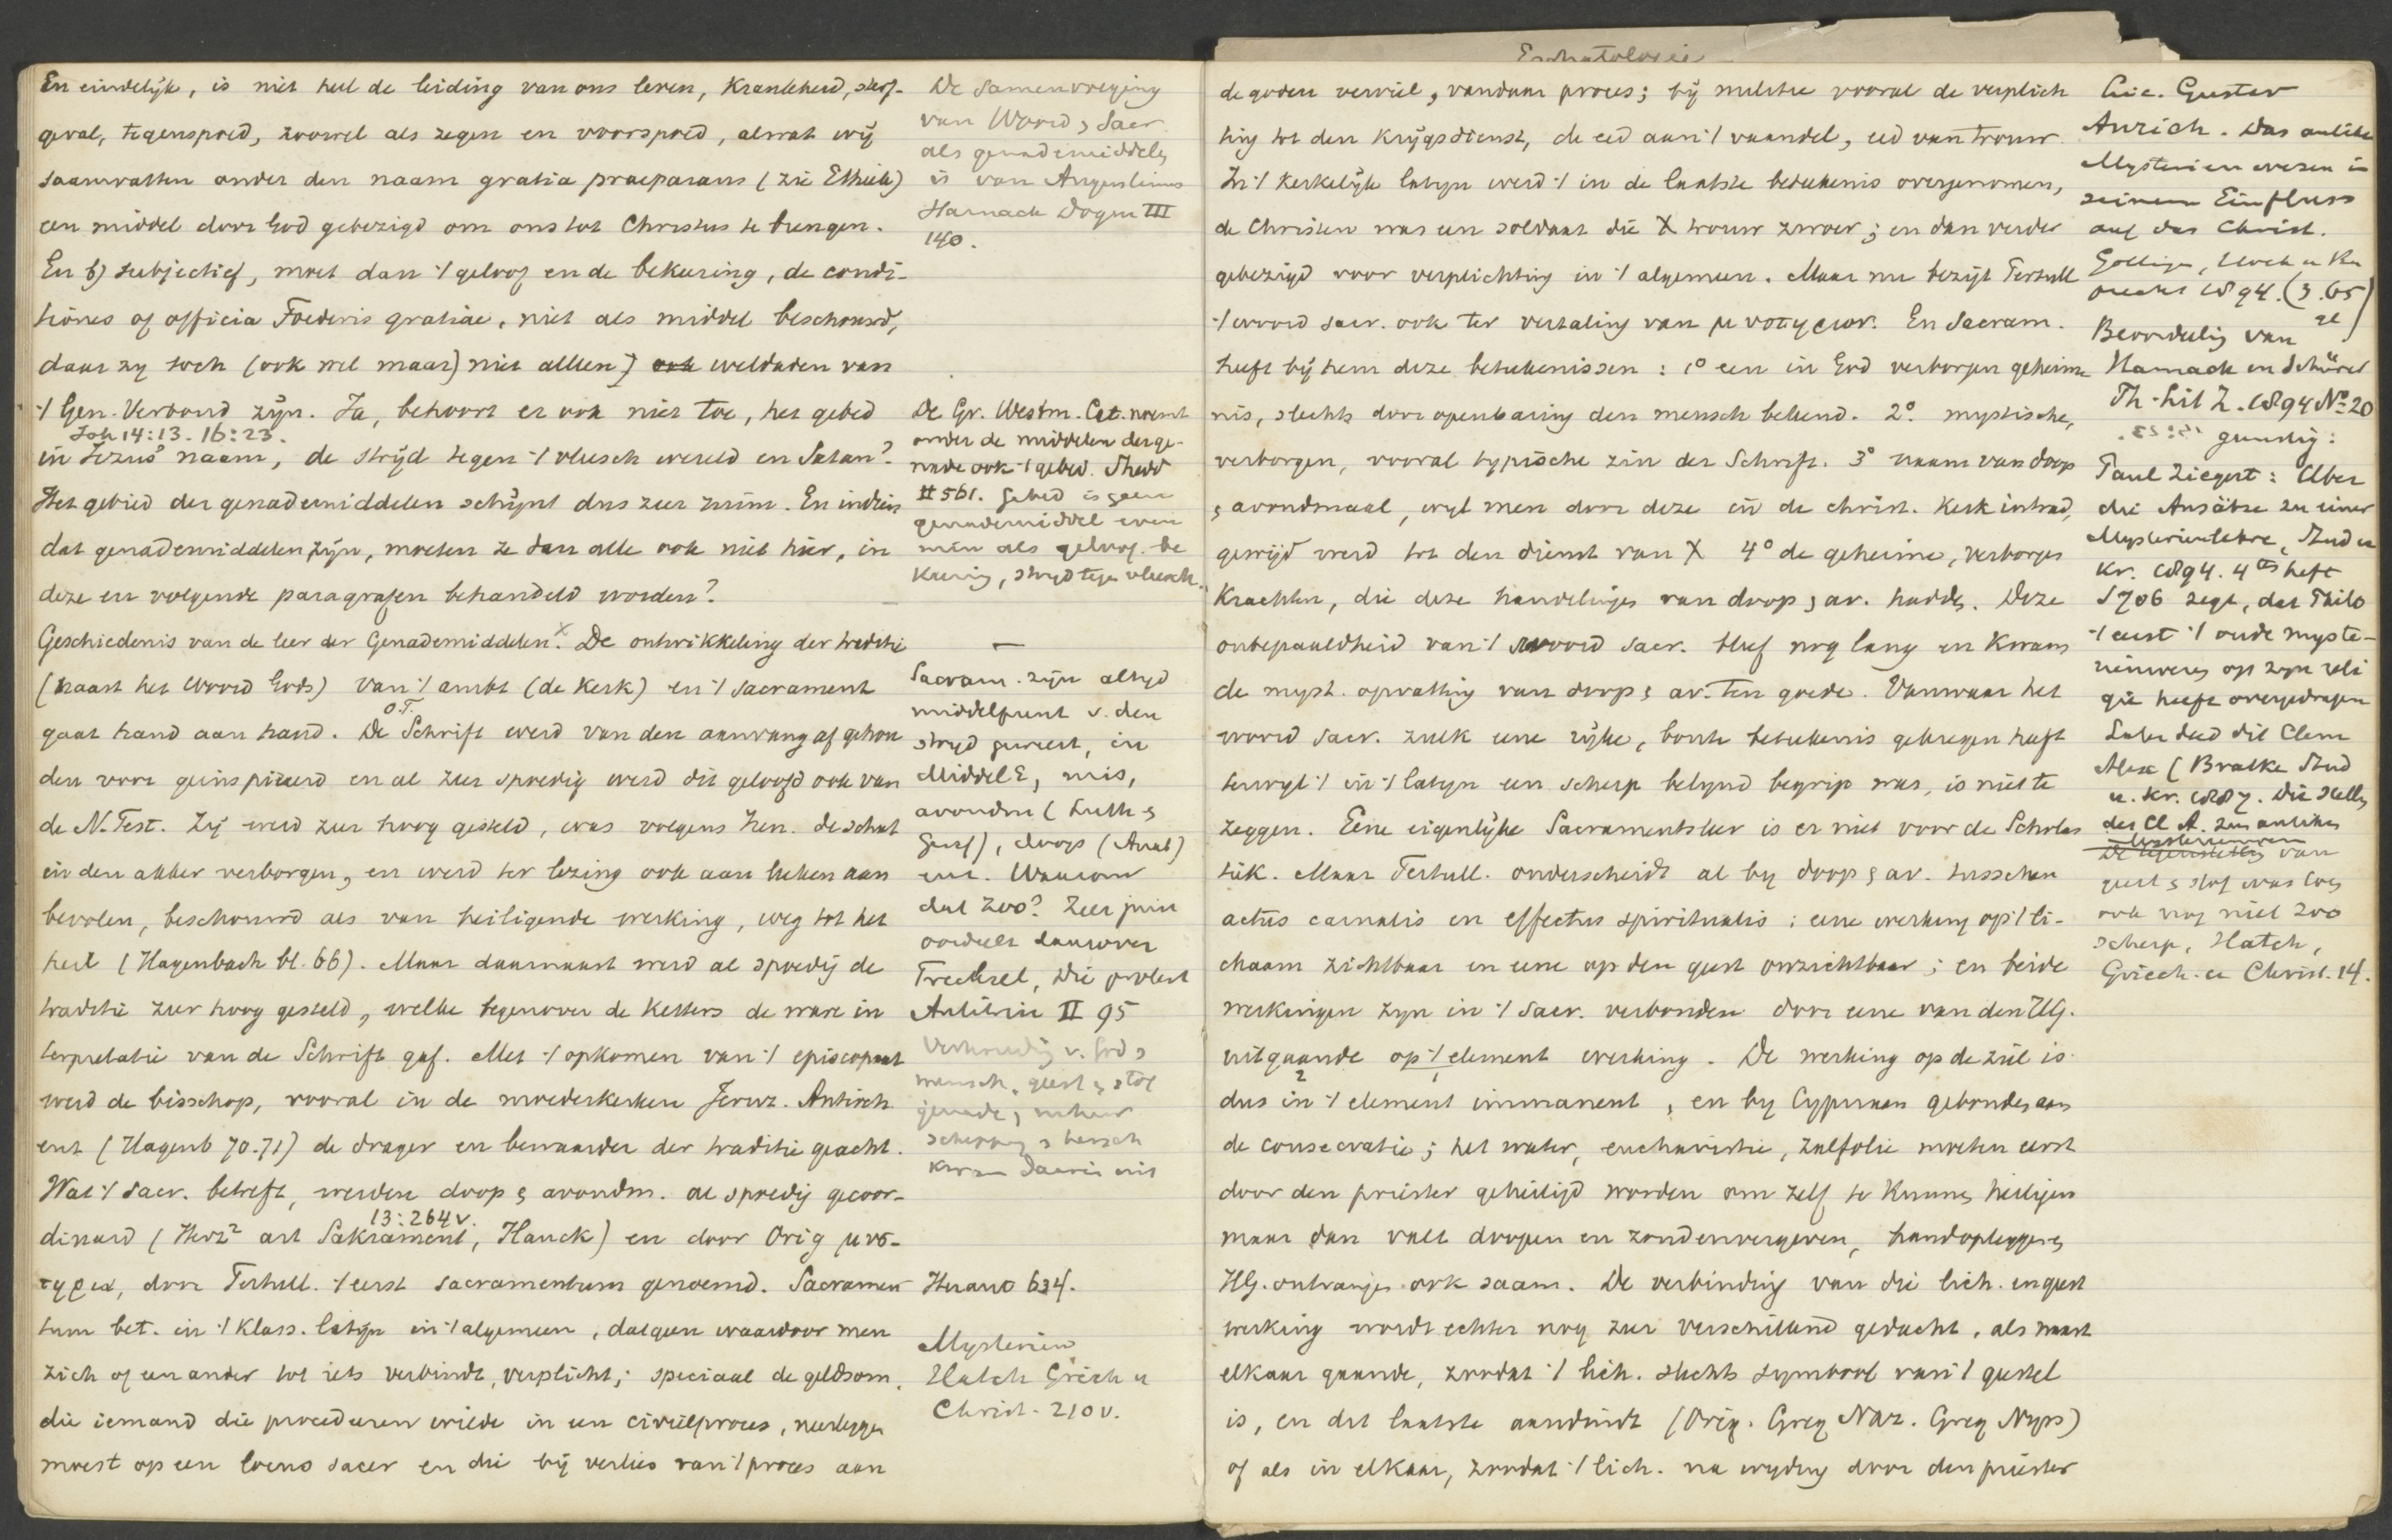 En eindelijk, is niet heel de leiding van ons leven, Krankheid, sterf-
geval, tegenspoed, zoowel als zegen en voorspoed, alwat wij
saamvatten onder den naam gratia praeparans (zie Ethiek)
een middel door God gebezigd om ons tot Christus te brengen.
En b) subjectief, moet dan 't geloof en de bekeering, de condi-
tiones of officia Foederis gratiae, niet als middel beschouwd,
daar zy toch (ook wel maar) niet alleen) weldaden van
't Gen. Verbond zijn. Ja, behoort er ook niet toe, het gebed
Joh 14:13. 16:23.
in Jezus' naam, de strijd tegen 't vleesch wereld en Satan?
Het gebied der genademiddelen schijnt dus zeer ruim. En indien
dat genademiddelen zijn, moeten ze dan alle ook niet hier, in
deze en volgende paragrafen behandeld worden?
Geschiedenis van de leer der Genademiddelen. x De ontwikkeling der traditie
(naast het Woord Gods) van 't ambt (de Kerk) en 't sacrament
O.T.
gaat hand aan hand. De Schrift werd van den aanvang af gehou
den voor geinspireerd en al zeer spoedig werd dit geloofd ook van
de N. Test. Zij werd zeer hoog gesteld, was volgens Iren. de schat
in den akker verborgen, en werd ter lezing ook aan leeken aan
bevolen, beschouwd als van heiligende werking, weg tot het
heil (Hagenbach bl. 66). Maar daarnaast werd al spoedig de
traditie zeer hoog gesteld, welke tegenover de Ketters de ware in
terpretatie van de Schrift gaf. Met 't opkomen van 't episcopaat
werd de bisschop, vooral in de moederkerken Jeruz. Antioch
enz (Hagenb 70.71) de drager en bewaarder der traditie geacht.
Wat 't sacr. betreft, werden doop & avondm. al spoedig gecoor-
13:264v.
dineerd (Herz² art Sakrament, Hauck) en door Orig μυσ-
τηρια, door Tertull. 't eerst sacramentum genoemd. Sacramen
tum bet. in 't Klass. latijn in 't algemeen, datgeen waardoor men
zich of een ander tot iets verbindt, verplicht; speciaal de geldsom,
die iemand die procedeeren wilde in een civielproces, neerleggen
moest op een locus sacer en die bij verlies van 't proces aan
De samenvoeging
van Woord & Sacr
als genademiddelen
is van Augustinus
Harnack Dogm III
140.
De Gr. Westm. Cat. noemt
onder de middelen der ge-
nade ook 't gebed. Shedd
II 561. Gebed is geen
genademiddel even
min als geloof. be
Keering, stryd tegen vleesch.
Sacram. zijn altijd
middelpunt v. den
stryd geweest, in
Middel E, mis,
avondm (Luth &
Geref), doop (Anab)
enz. Waarom
dat zoo? Zeer juist
oordeelt daarover
Trechsel, Die protest
Antitrin II 95
Verhouding v. God &
mensch, geest & stof
genade, natuur
schepping & hersch
Kwam daarin uit
Herano 634.
Mysteriën
Hatch Griech u
Christ. 210v.
Eschatologie
de goden verviel, vandaar proces; bij militie vooral de verplich
ting tot den Krijgsdienst, de eed aan 't vaandel, eed van trouw
In 't Kerkelijk latyn werd 't in de laatste beteekenis overgenomen,
de Christen was een soldaat die X trouw zwoer; en dan verder
gebezigd voor verplichting in 't algemeen. Maar nu bezigt Tertull
't woord sacr. ook ter vertaling van μυστηριον. En Sacram.
heeft bij hem deze beteekenissen: 1° een in God verborgen geheime
nis, slechts door openbaring den mensch bekend. 2° mystische,
verborgen, vooral typische zin der Schrift. 3° naam van doop
& avondmaal, wyl men door deze in de christ. Kerk intrad,
gewijd werd tot den dienst van X 4° de geheime, verborgen
Krachten, die deze handelingen van doop & av. hadden. Deze
onbepaaldheid van 't woord sacr. bleef nog lang en Kwam
de myst. opvatting van doop & av. ten goede. Vanwaar het
woord sacr. zulk eene rijke, bonte beteekenis gekregen heeft
terwyl 't in 't latyn een scherp belynd begrip was, is niet te
zeggen. Eene eigenlijke Sacramentsleer is er niet voor de Scholas
tiek. Maar Tertull. onderscheidt al by doop & av. tusschen
actus carnalis en effectus spiritualis: eene werking op 't li-
chaam zichtbaar en eene op den geest onzichtbaar; en beide
werkingen zyn in 't sacr. verbonden door eene van den HG.
uitgaande op 't element werking. De werking op de ziel is
dus in 't element immanent, en by Cypriaan gebonden aan
de consecratie; het water, eucharistie, zalfolie moeten eerst
door den priester geheiligd worden om zelf te Kunnen heiligen
maar dan valt doopen en zondenvergeven, handopleggen &
HG. ontvangen ook saam. De verbinding van die lich. en geest
werking wordt echter nog zeer verschillend gedacht, als naast
elkaar gaande, zoodat 't lich. slechts symbool van 't geestel
is, en dit laatste aanduidt (Orig. Greg Naz. Greg Nyss)
of als in elkaar, zoodat 't lich. na wyding door den priester
Lic. Gustav
Anrich. Das antike
Mysterienwesen in
seinem Einfluss
auf das Christ.
1894.
Beoordeling van
Harnack en Schürer
Th. Lit Z. 1894 No 20
gunstig:
Paul Ziegert: Uber
die Ansätze zu einer
Mysterienlehre, Stud u
Kr. 1894. 4tes heft
S706 zegt, dat Philo
't eerst 't oude myste-
rieinwezen op zyn reli
gie heeft overgedragen
Later deed dit Clem
Alex (Bratke Stud
u. Kr. 1887. Die Stellg
des Cl A. zum antiken
Mysterienwesen
De tegenstelling van
geest & stof was toen
ook nog niet zoo
scherp, Hatch,
Griech. u Christ. 14.